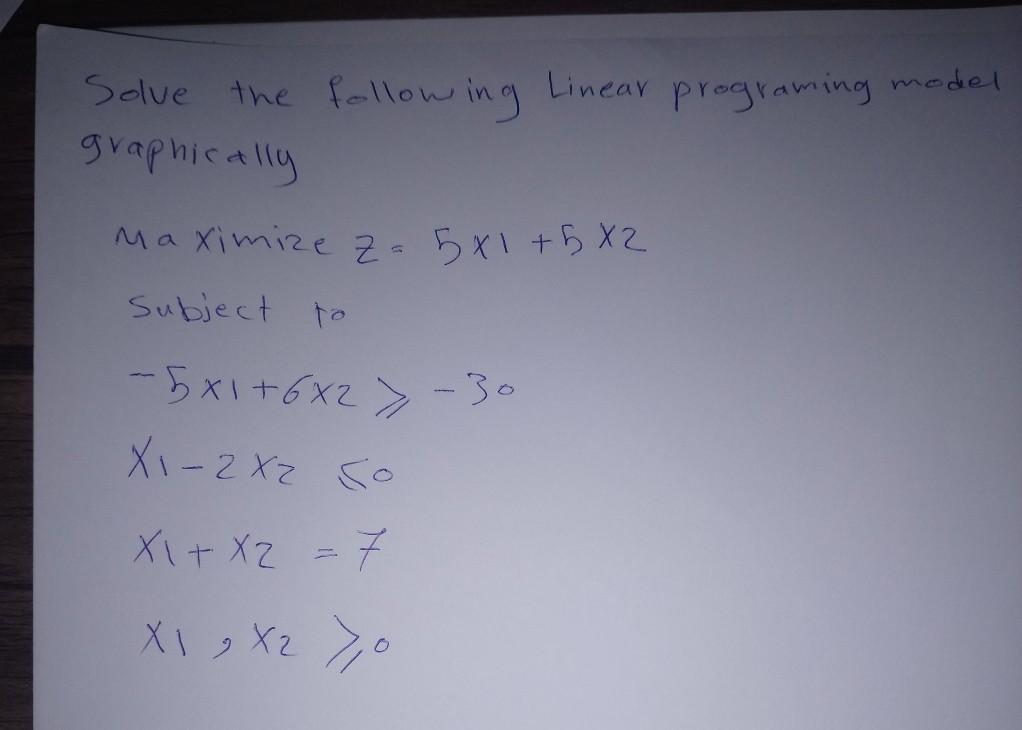 Solve the following Linear programing model
graphically
Maximize z = 5x1 + 5x2
Subject to
-5x1+6x2 ⩾ -30
X1-2X2 ⩽0
X1+X2 = 7
X1, X2 ⩾0